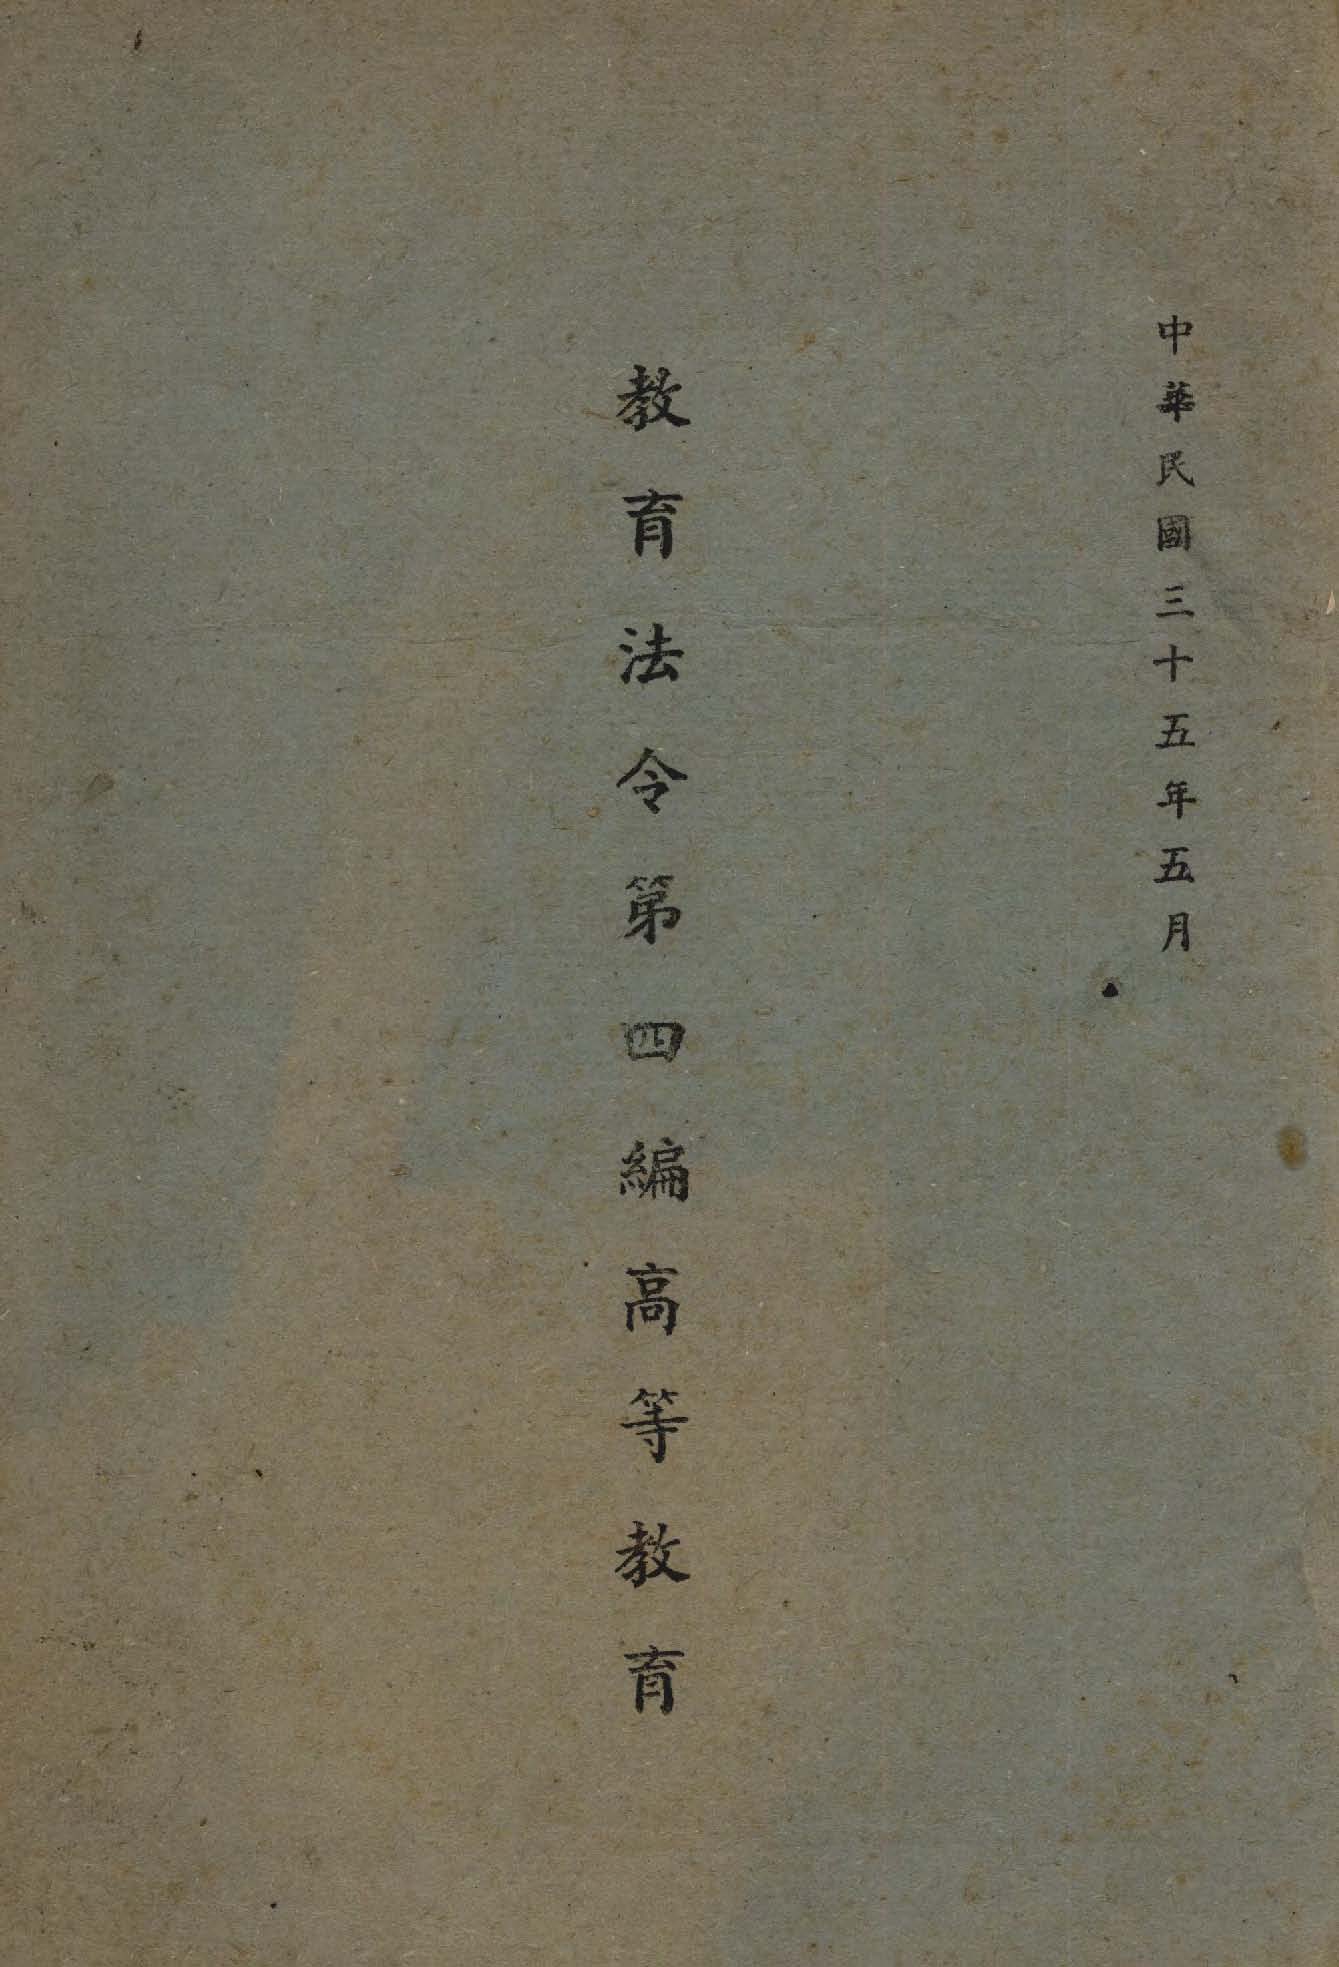 中華民國三十五年五月
教育法令第四編高等教育